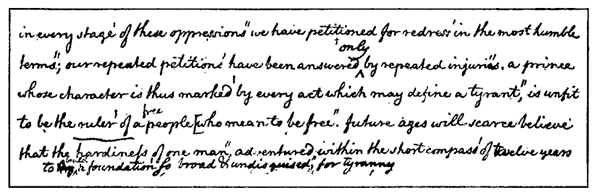 in every stage' of these oppressions" we have petitioned for redress' in the most humble
terms"; our repeated petitions' have been answered only by repeated injuries. a prince
whose character is thus marked' by every act which may define a tyrant," is unfit
to be the ruler' of a free people [who mean to be free". future ages will scarce believe
that the hardiness of one man," adventured within the short compass' of twelve years
to foundation so broad & undisguised", for tyranny